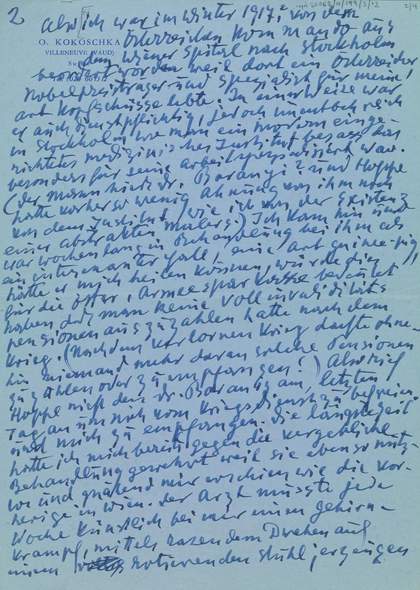 2 Also ich war im Winter 1917, von dem
Österreichen Kommando aus
O. KOKOSCHKA
VILLENEUVE (VAUD)
dem Wiener Spital nach Stockholm
worden weil dort ein Österreicher
Nobelpreisträger und Spezialist für meine
art Kopfschüsse lebte. In einer Weise war
er auch dienstpflichtig, jedoch unentbehrlich
in Stockholm wo man ein modern einge-
richtetes medizinisches Institut besass das
besonders für seine arbeit war.
(der Mann hiess dr. Barany? und Hoppe
hatte vorher so wenig Ahnung von ihm noch
von dem Institut, wie ich von der Existenz
eines abstrakten malers.) Ich kam hin und
war wochenlang in Behandlung bei ihm als
ein interessanter Fall, eine art guinee-pig,
hätte er mich heilen können, würde dies
für die öster. Armee bedeutet
haben dass man keine Vollinvaliditäts
pensionen auszuzahlen hatte nach dem
Krieg. (Nach dem verlornen Krieg dachte ohne-
hin niemand mehr daran solche Pensionen
zu zahlen oder zu empfangen!) Also rief
Hoppe nicht den dr. Barany am letzten
Tag an um mich vom Kriegsdienst zu befreien
und mich zu empfangen. die längste Zeit
hatte ich mich bereits gegen die vergebliche
Behandlung gewehrt weil sie ebenso nutz-
los und quälend mir erschien wie die vor-
herige in Wien. der Arzt musste jede
Woche künstlich bei mir einen gehirn-
Krampf, mittels rasendem Drehen auf
einem rotierenden Stuhl, erzeugen